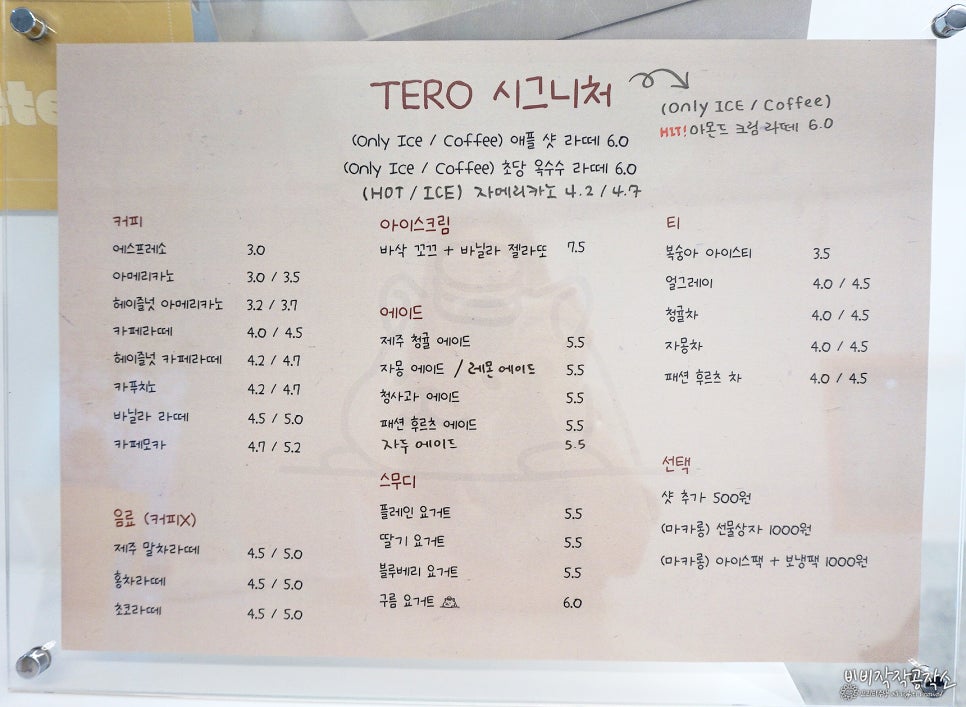 TERO 시그니처
(Only ICE / Coffee)
HIT! 아몬드 크림 라떼 6.0
(Only Ice / Coffee) 애플 샷 라떼 6.0
(Only Ice / Coffee) 초당 옥수수 라떼 6.0
(HOT / ICE) 자메리카노 4.2 / 4.7
커피
에스프레소 3.0
아메리카노 3.0 / 3.5
헤이즐넛 아메리카노 3.2 / 3.7
카페라떼 4.0 / 4.5
헤이즐넛 카페라떼 4.2 / 4.7
카푸치노 4.2 / 4.7
바닐라 라떼 4.5 / 5.0
카페모카 4.7 / 5.2
음료 (커피X)
제주 말차라떼 4.5 / 5.0
홍차라떼 4.5 / 5.0
초코라떼 4.5 / 5.0
아이스크림
바삭 꼬끄 + 바닐라 젤라또 7.5
에이드
제주 청귤 에이드 5.5
자몽 에이드 / 레몬에이드 5.5
청사과 에이드 5.5
패션 후르츠 에이드 5.5
자두 에이드 5.5
스무디
플레인 요거트 5.5
딸기 요거트 5.5
블루베리 요거트 5.5
구름 요거트 6.0
티
복숭아 아이스티 3.5
얼그레이 4.0 / 4.5
청귤차 4.0 / 4.5
자몽차 4.0 / 4.5
패션 후르츠 차 4.0 / 4.5
선택
샷 추가 500원
(마카롱) 선물상자 1000원
(마카롱) 아이스팩 + 보냉팩 1000원
비비작작공작소